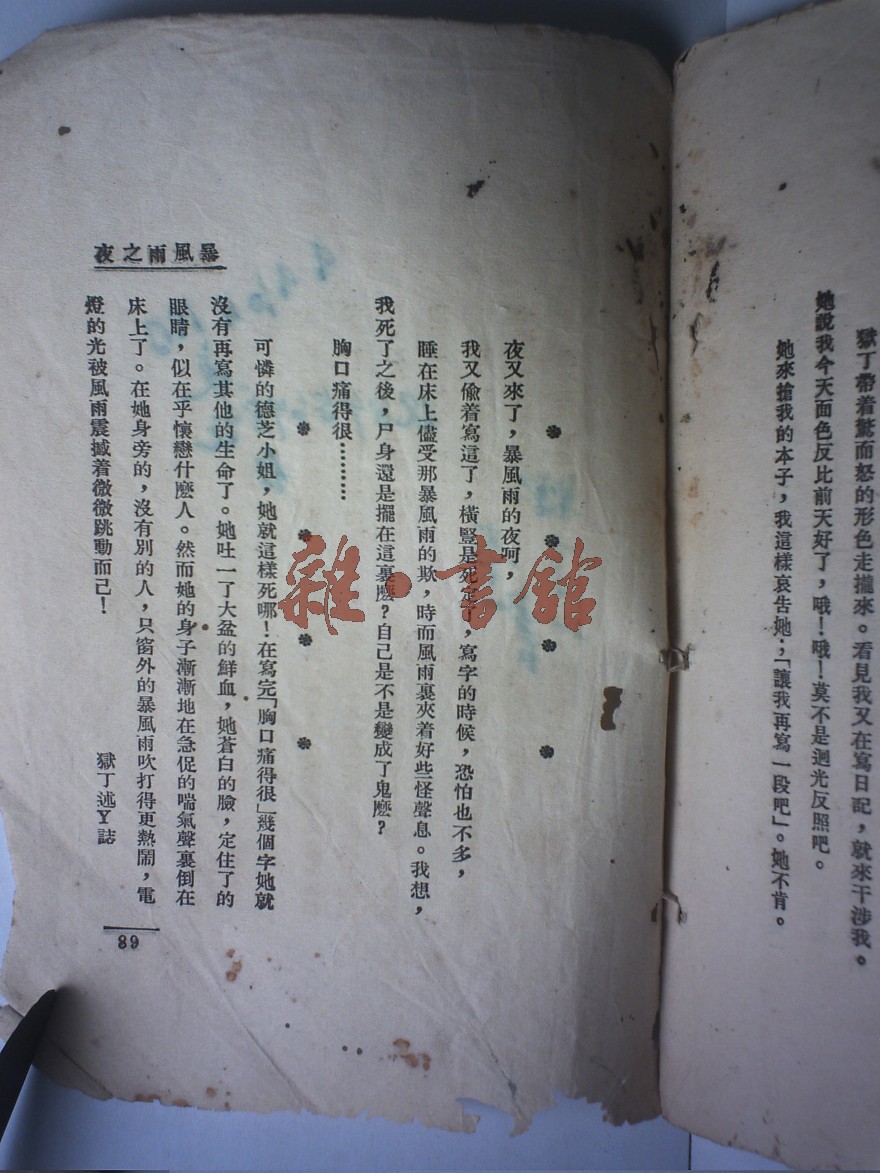 獄丁帶着驚而怒的形色走攏來。看見我又在寫日記,就來干涉我。
她說我今天面色反比前天好了,哦!哦!莫不是迴光反照吧。
她來搶我的本子,我這樣哀告她:「讓我再寫一段吧」。她不肯。
夜又來了,暴風雨的夜呵,
我又偸着寫這了,橫豎是死定了,寫字的時候,恐怕也不多,
睡在床上儘受那暴風雨的欺,時而風雨裏夾着好些怪聲息。我想,
我死了之後,尸身還是擺在這裏麽?自己是不是變成了鬼麽?
胸口痛得很…………
可憐的德芝小姐,她就這樣死哪!在寫完「胸口痛得很」幾個字她就
沒有再寫其他的生命了。她吐一了大盆的鮮血,她蒼白的臉,定住了的
眼睛,似在乎懷戀什麽人。然而她的身子漸漸地在急促的喘氣聲裏倒在
床上了。在她身旁的,沒有別的人,只窗外的暴風雨吹打得更熱鬧,電
燈的光被風雨震撼着微微跳動而己!
獄丁述Y誌
暴風雨之夜
89
雜·書館